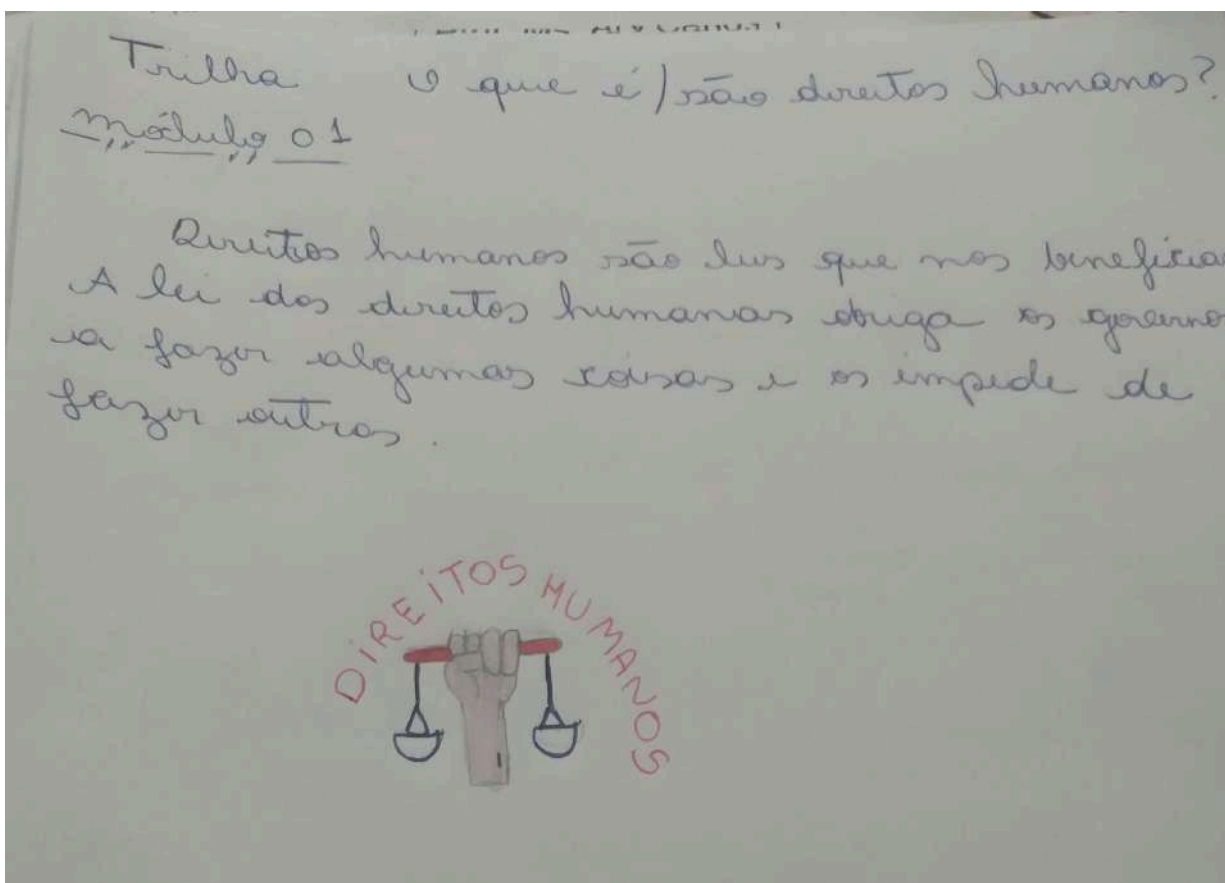 Trilha O que é / são direitos humanos?
módulo 01
Direitos humanos são leis que nos beneficia
A lei dos direitos humanos obriga os governo
a fazer algumas coisas e os impede de
fazer outros.
DIREITOS HUMANOS